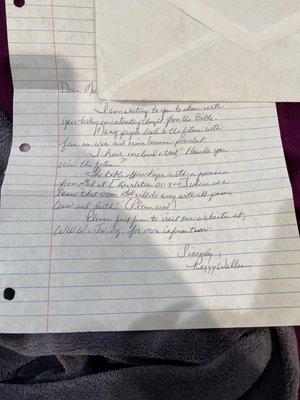 Dear M
I am writing to you to share with
you today an interesting thought from the Bible.
Many people look to the future with
fear as war and crime become prevalent.
I have enclosed a tract "How do you
view the future?"
The Bible offers hope with a promise
from God at Revelation 21:3+4 where we
learn that soon God will do away with all pain,
tears and death! (Please read)
Please feel free to visit our website at,
WWW. Jw.org. for more information.
Sincerely,
Peggy